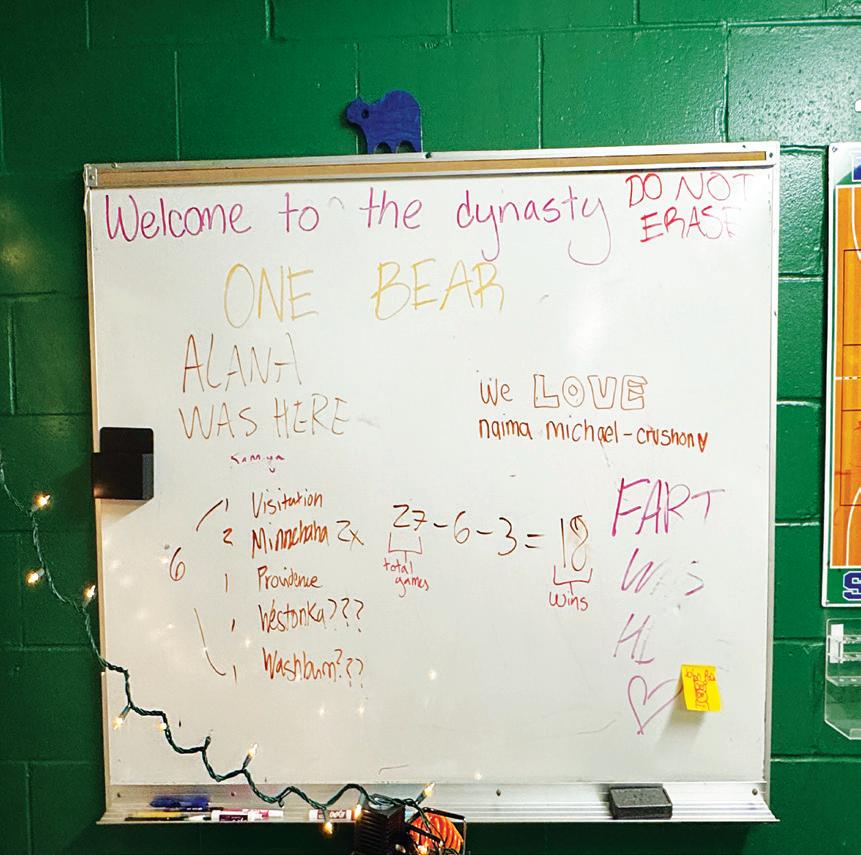 Welcome to the dynasty
DO NOT
ERASE
ONE BEAR
ALANA
WAS HERE
We LOVE
naima michael-crushon
Samiya
1 Visitation
2 Minnehaha 2x
6
1 Providence
1 Westonka???
1 Washburn???
27-6-3=18
total
games
wins
FART
WAS
HE
S